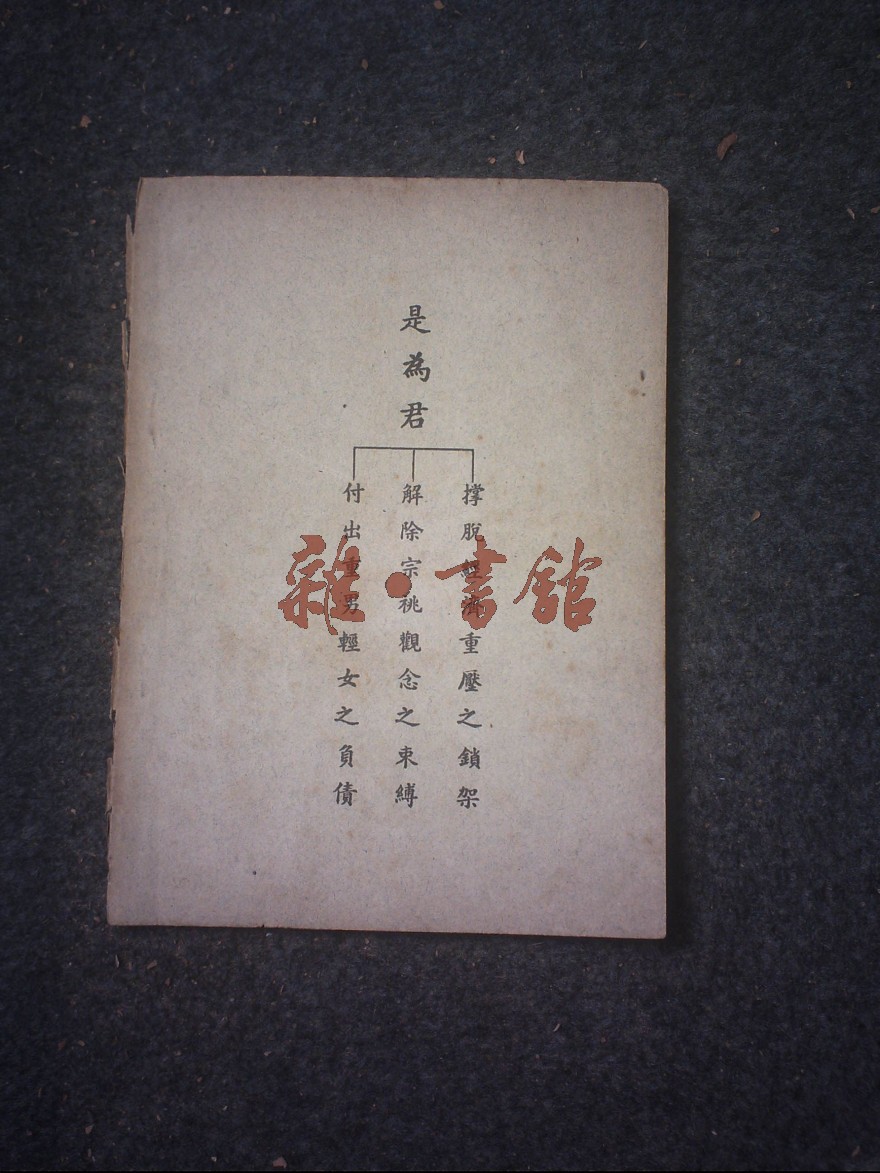 是為君
撑脫經濟重壓之鎖架
解除宗祧觀念之束縛
付出重男輕女之負債
雜·書館